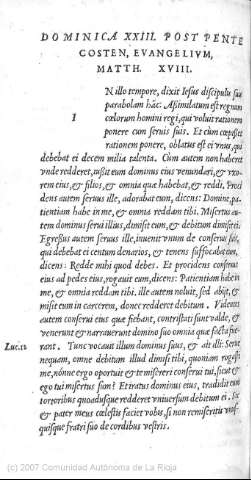 DOMINICA XXIII. POST PENTE
COSTEN, EVANGELIVM,
MATTH. XVIII.
IN illo tempore, dixit Iesus discipulis suis
parabolam hāc: Assimilatum est regnum
cœlorum homini regi, qui voluit rationem
ponere cum seruis suis. Et cum cœpisset
rationem ponere, oblatus est ei vnus, qui
debebat ei decem milia talenta. Cum autem non haberet
vnde redderet, iussit eum dominus eius venundari, & vxo
rem eius, & filios, & omnia quæ habebat, & reddi. Proci
dens autem seruus ille, adorabat eum, dicens: Domine, pa
tientiam habe in me, & omnia reddam tibi. Misertus au
tem dominus serui illius, dimisit eum, & debitum dimisit ei.
Egressus autem seruus ille, inuenit vnum de conseruis suis,
qui debebat ei centum denarios, & tenens suffocabat eum,
dicens: Redde mihi quod debes. Et procidens conseruus
eius ad pedes eius, rogauit eum, dicens: Patientiam habe in
me, & omnia reddam tibi. ille autem noluit, sed abijt, &
misit eum in carcerem, donec redderet debitum. Videntes
autem conserui eius quæ fiebant, contristati sunt valde, &
venerunt & narrauerunt domino suo omnia quæ facta fue
Luc.12 rant. Tunc vocauit illum dominus suus, & ait illi: Serue
nequam, omne debitum illud dimisi tibi, quoniam rogasti
me, nónne ergo oportuit & te misereri conserui tui, sicut &
ego tui misertus sum? Et iratus dominus eius, tradidit eum
tortoribus quoadusque redderet vniuersum debitum ei. Sic
& pater meus cœlestis faciet vobis, si non remiseritis vnus
quisque fratri suo de cordibus vestris.
(c) 2007 Comunidad Autónoma de La Rioja